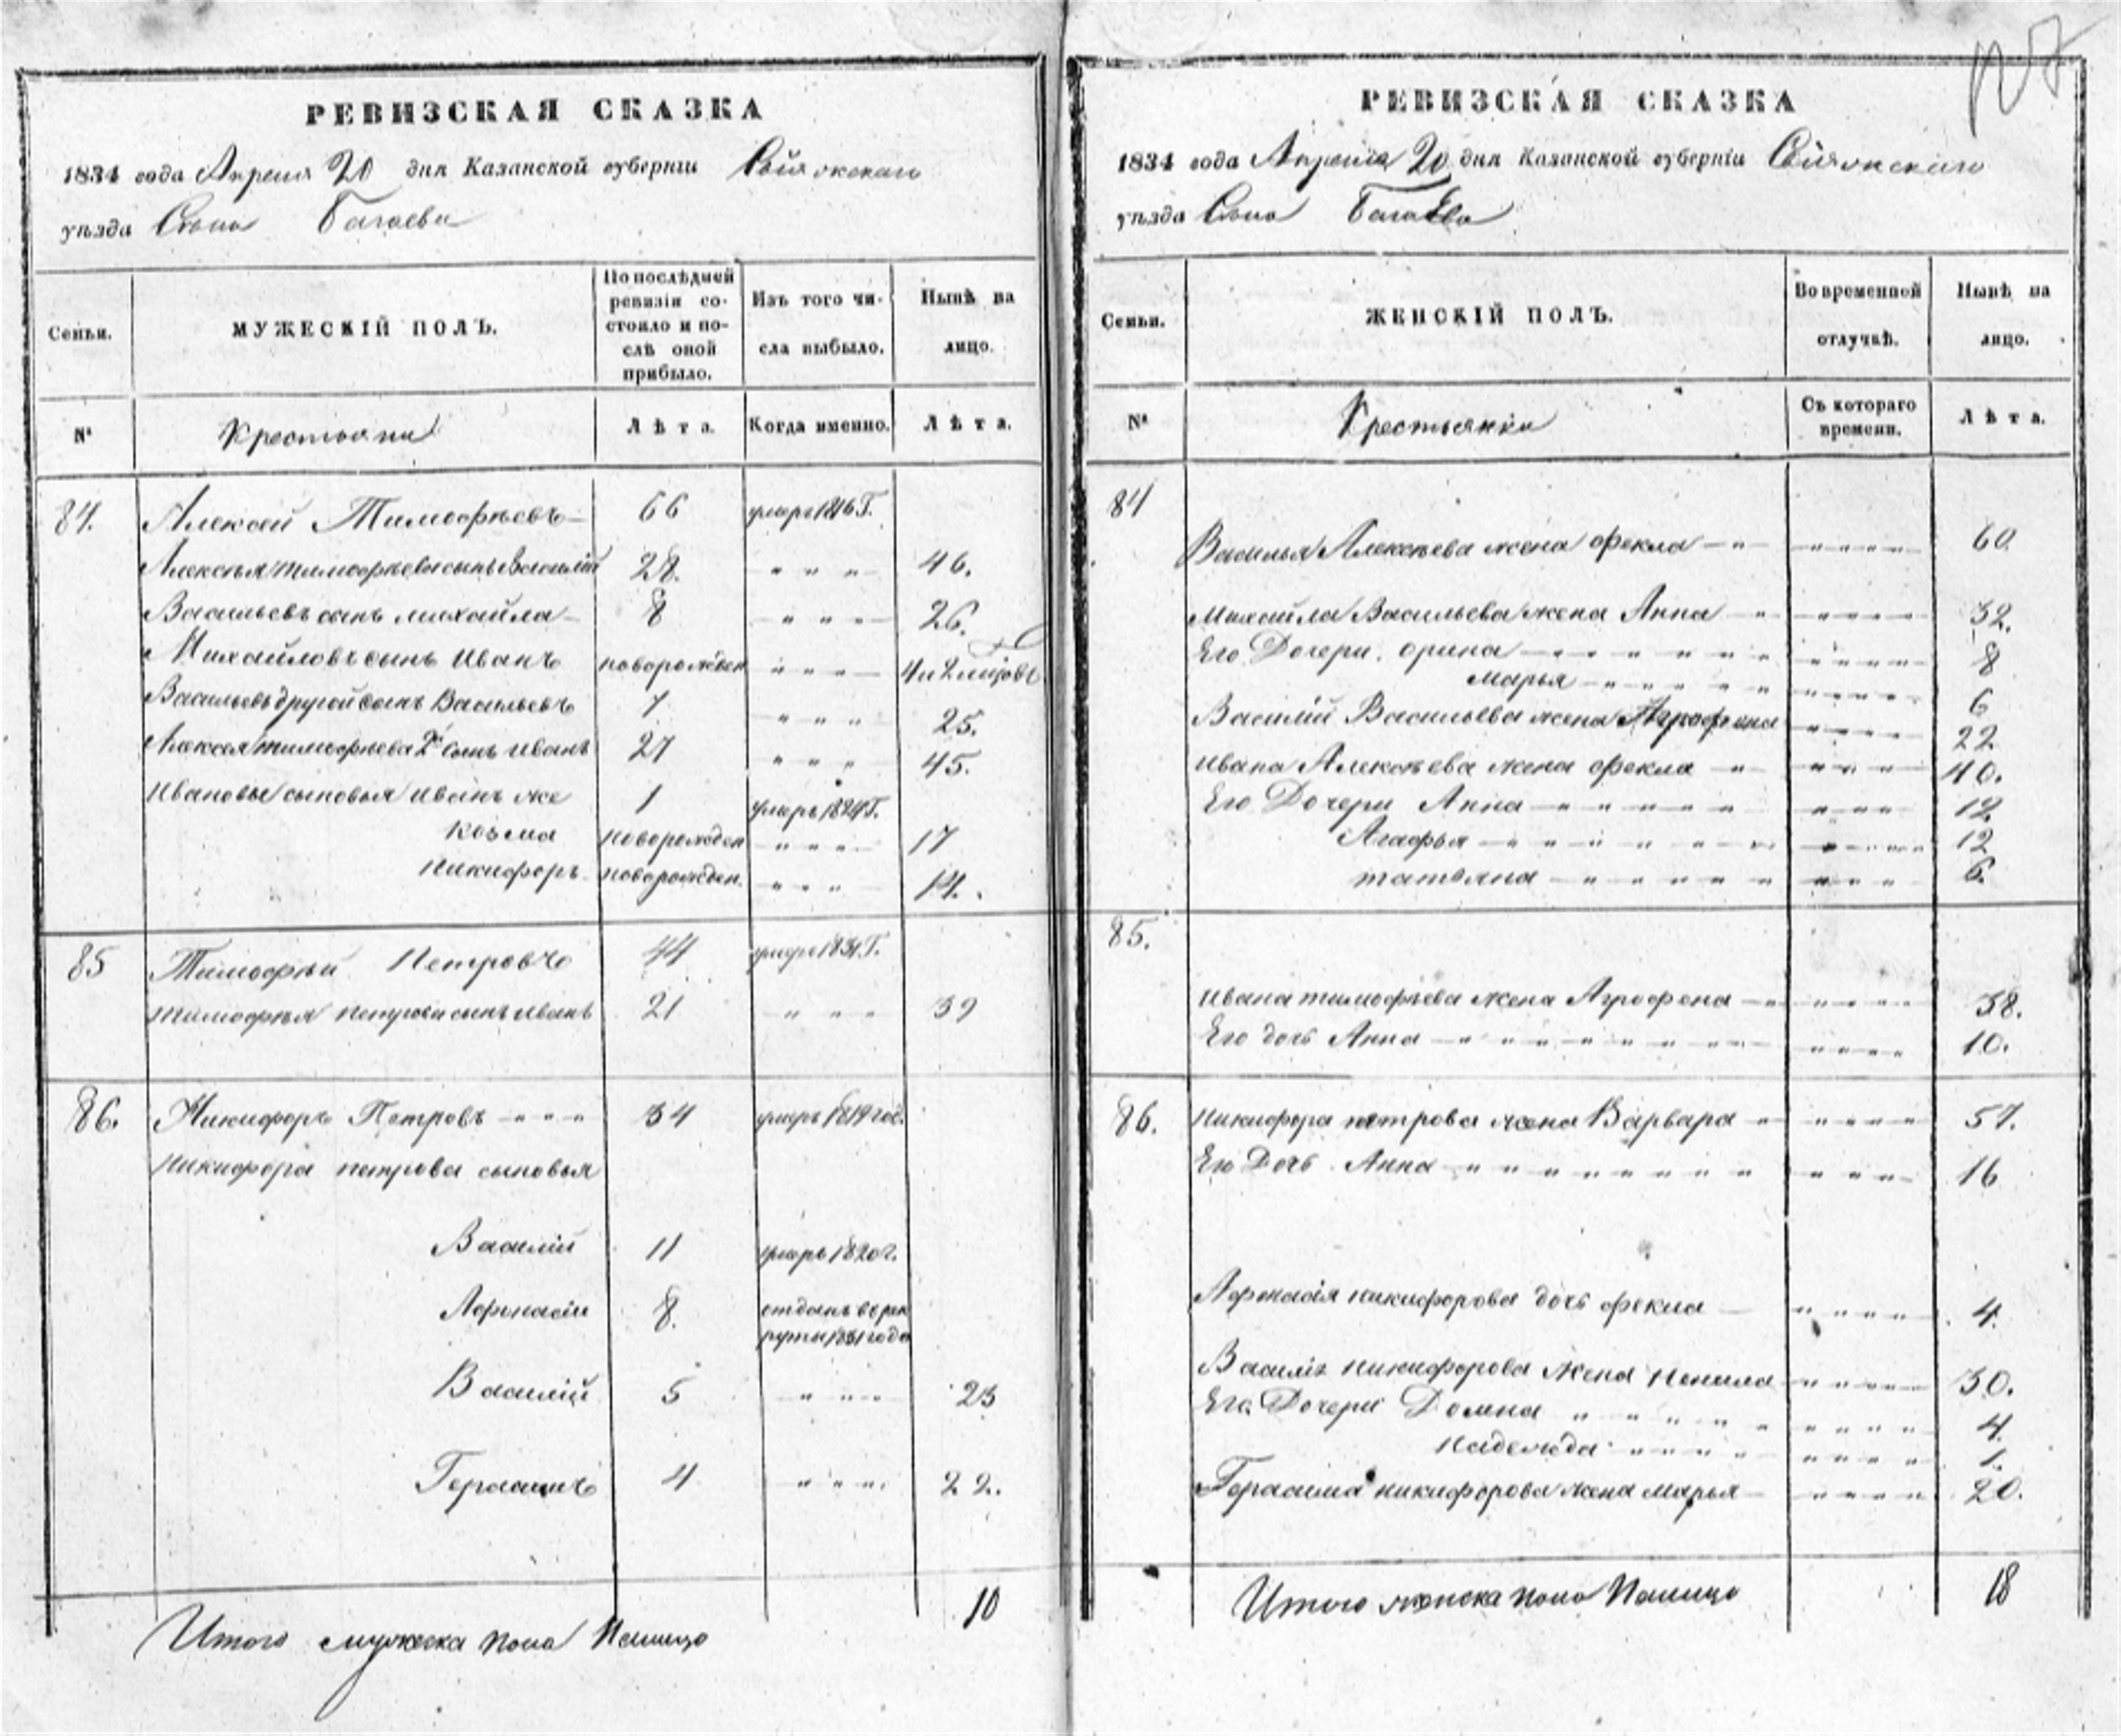 РЕВИЗСКАЯ СКАЗКА
1834 года Апреля 20 дня Казанской губерніи Свіяжскаго
уѣзда Села Багаева
Семьи.
МУЖЕСКІЙ ПОЛЪ.
По послѣдней ревизіи состояло и послѣ оной прибыло.
Изъ того числа выбыло.
Нынѣ на лицо.
№
Крестьяна
Лѣта.
Когда именно.
Лѣта.
84. Алексей Тимофѣевъ 66 умеръ 1816 Г.
Алексѣя тимофѣева сынъ Василій 28. " " " 46.
Васильевъ сынъ михайла 8 " " " 26.
Михайловъ сынъ Иванъ новорожден " " "
Васильевъ другой сынъ Васильевъ 7 " " " 25.
Алексея тимофѣева 2й сынъ иванъ 27 " " " 45.
Ивановы сыновья иванъ же 1 умеръ 1824 Г.
козма новорожден " " " 17
Никифоръ новорожден. " " " 14.
85 Тимофѣй Петровъ 44 умеръ 1831 Г.
тимофѣя петрова сынъ иванъ 21 " " " 39
86. Никифоръ Петровъ " " " 34 умеръ 1819 год.
Никифора петрова сыновья
Василій 11 умеръ 1820 г.
Афонасіи 8. отданъ в рек
руты 1831 года
Василій 5 " " " 23
Герасимъ 4 " " " 22.
Итого мужеска пола Налицо 10
РЕВИЗСКАЯ СКАЗКА
1834 года Апреля 20 дня Казанской губерніи Свіяжскаго
уѣзда Села Багаева
Семьи.
ЖЕНСКІЙ ПОЛЪ.
Во временной отлучкѣ.
Нынѣ на лицо.
№
Крестьянки
Съ котораго времени.
Лѣта.
84
Василья Алексѣева жена фекла " " " " " 60.
Михайла Васильева жена Анна " " " " " 32.
Его Дочери. орина " " " " " " " " " " 8
Марья " " " " " " " " " 6
Василій Васильева жена Агрофена " " " " 22
ивана Алексѣева жена фекла " " " " " 40.
Его Дочери Анна " " " " " " " " " 12
Агафья " " " " " " " " " " " 12
татяна " " " " " " " " " 6.
85.
ивана тимофѣева жена Агрофена " " " " " 38.
Его дочь Анна " " " " " " " " " " " " 10.
86. Никифора петрова жена Варвара " " " " " 57.
Его Дочь Анна " " " " " " " " " " " " 16
Афонасія никифорова дочь фекла " " " " 4.
Василія никифорова жена Ненила " " " " 30.
Его Дочери Домна " " " " " " " " " 4.
Надежда " " " " " " " " 1.
Герасима никифорова жена марья " " " " 20.
Итого женска пола Налицо 18